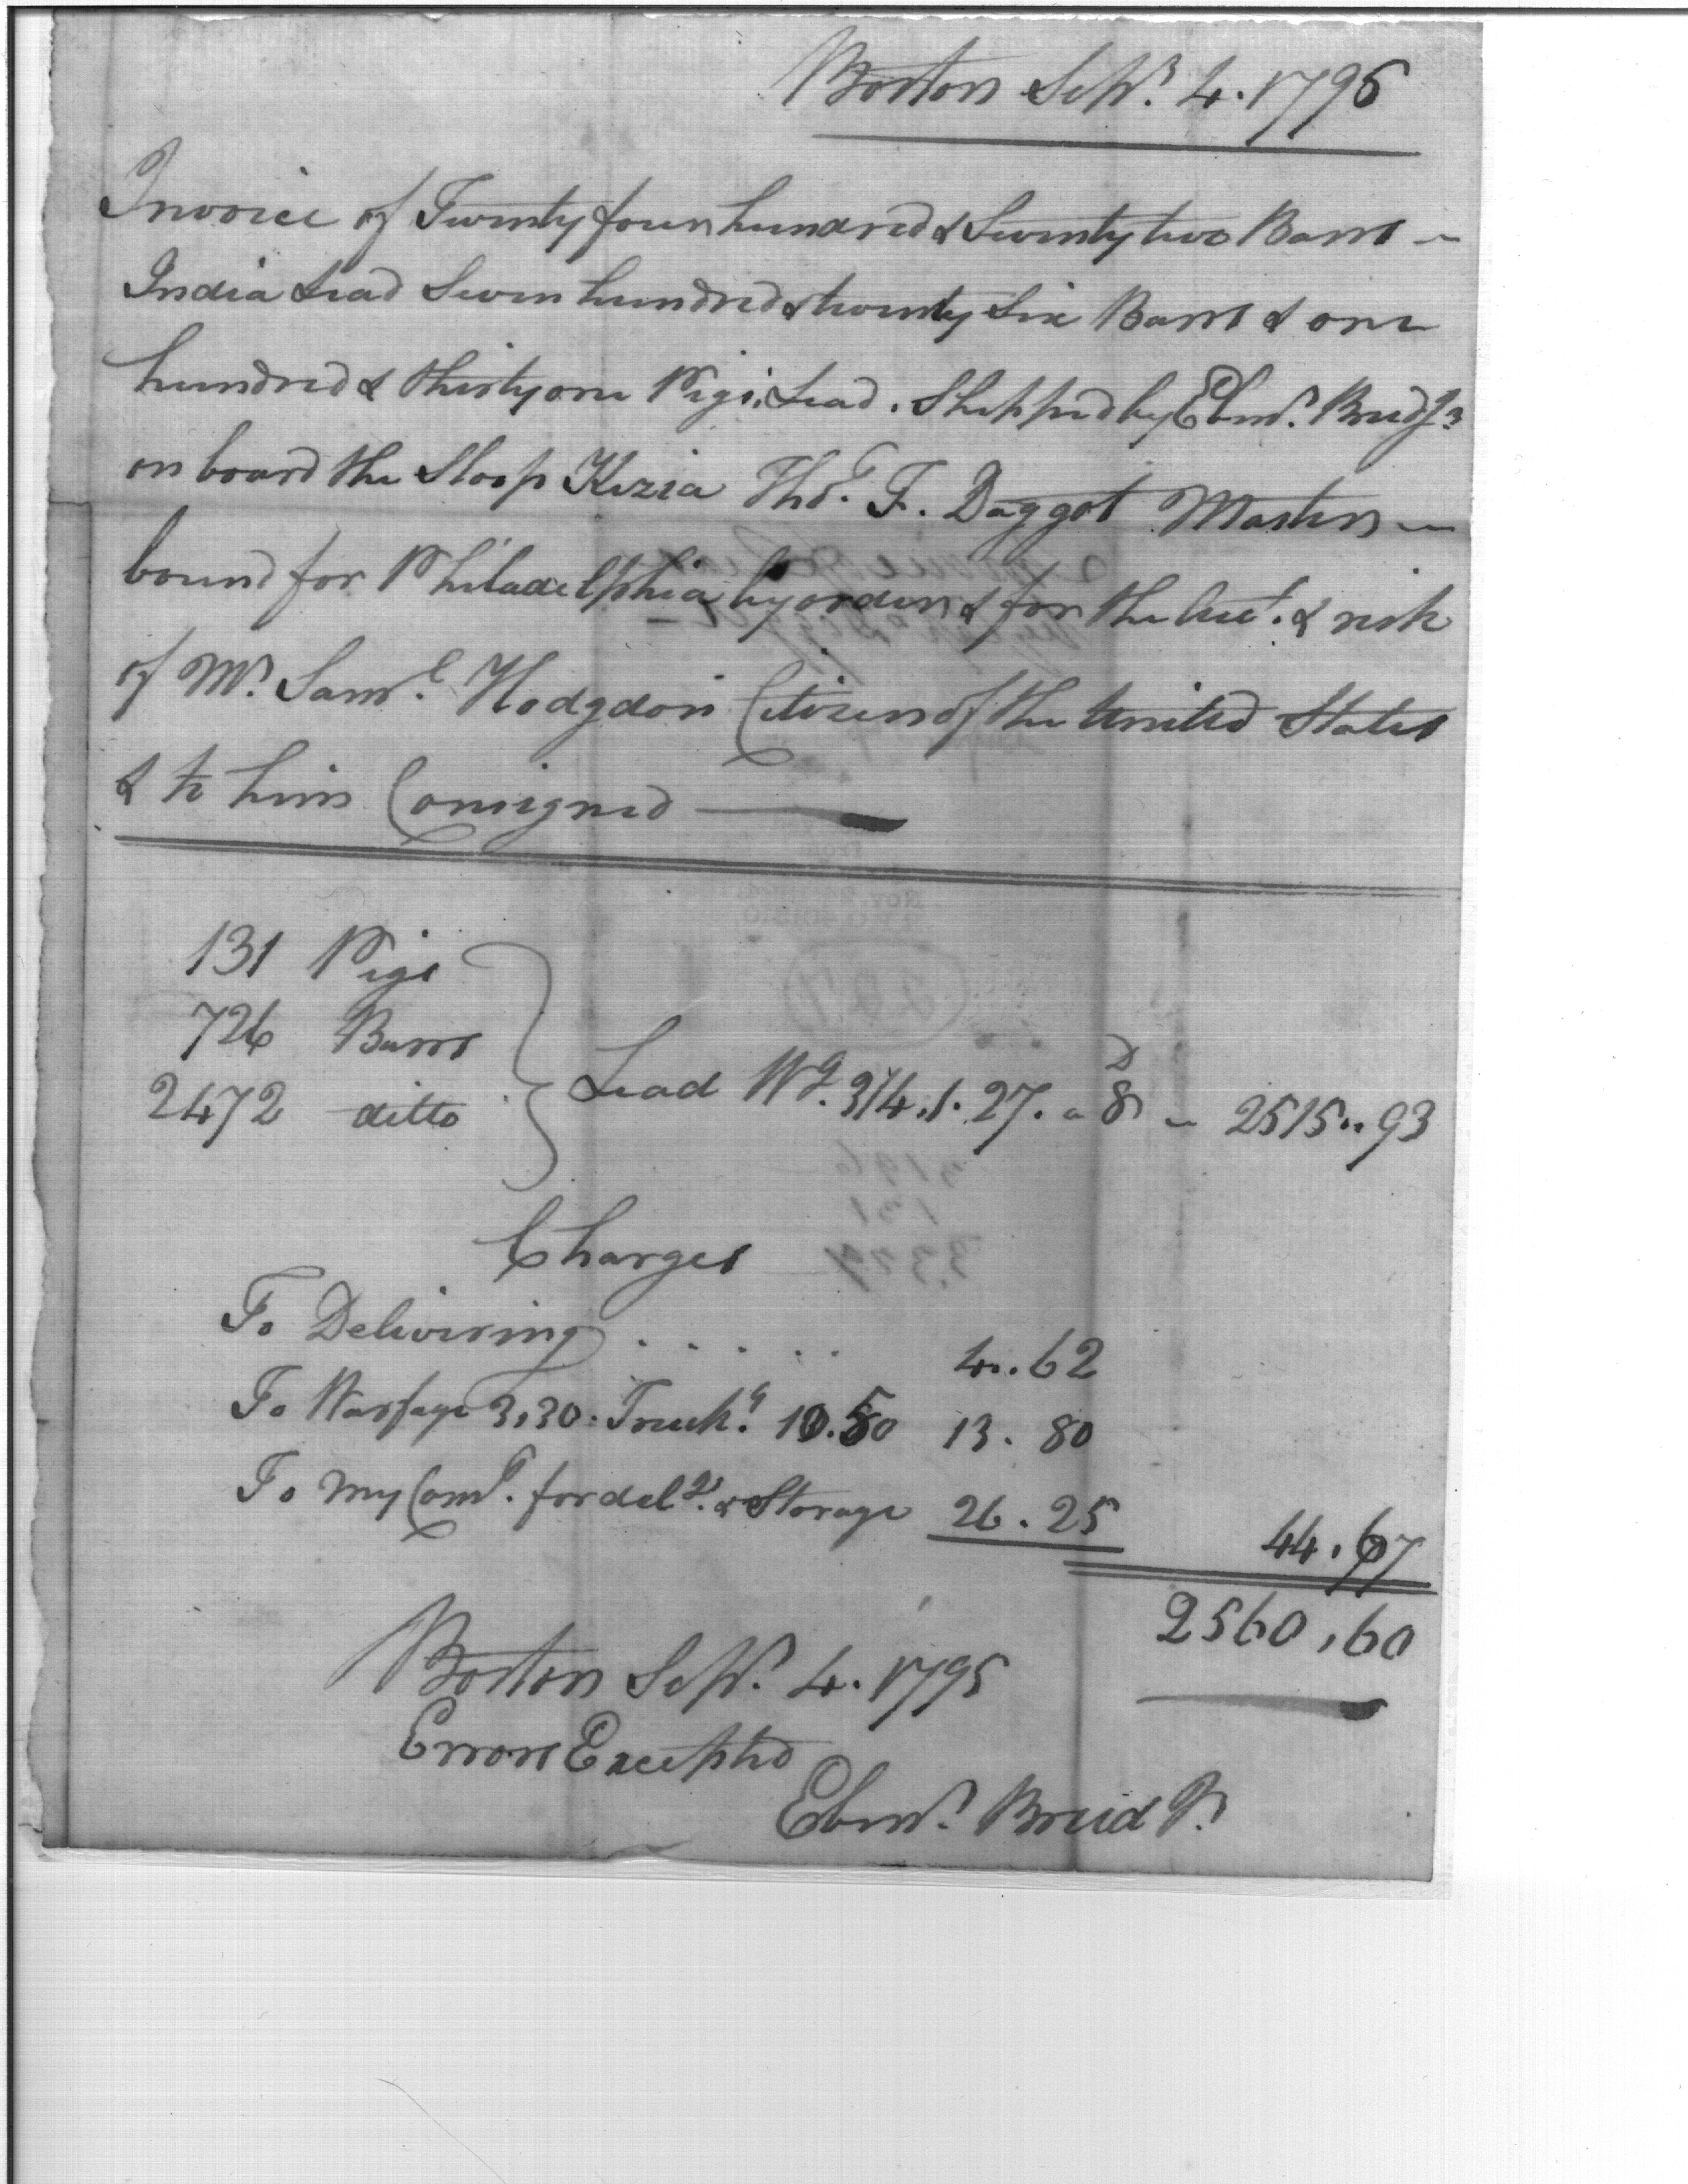 Boston Sepr. 4. 1795
Invoice of Twenty four hundred & Seventy two Barrs
India Lead Seven hundred & twenty Six Barrs & one
hundred & thirty one Pigs. Lead. Shipped by Ebenr. Breed Jr
on board the Sloop Kezia Thos. F. Daggot Master
bound for Philadelphia by order & for the Acct. & risk
of Mr. Saml. Hodgdon Citizen of the United States
& to him Consigned
131 Pigs
726 Barrs
2472 ditto
Lead Wg. 314.1.27. a 8 D 2515..93
Charges
To Delivering ..... 4..62
To Warfage 3,30. Truckg. 10.50 13.80
To my Comn. for delg. & Storage 26.25 44.67
2560,60
Boston Sepr. 4. 1795
Errors Excepted
Ebenr. Breed Jr.
3196
131